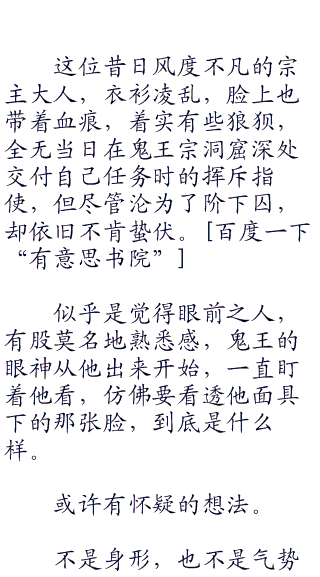 这位昔日风度不凡的宗
主大人，衣衫凌乱，脸上也
带着血痕，着实有些狼狈，
全无当日在鬼王宗洞窟深处
交付自己任务时的挥斥指
使，但尽管沦为了阶下囚，
却依旧不肯蛰伏。［百度一下
“有意思书院”］
似乎是觉得眼前之人，
有股莫名地熟悉感，鬼王的
眼神从他出来开始，一直盯
着他看，仿佛要看透他面具
下的那张脸，到底是什么
样。
或许有怀疑的想法。
不是身形，也不是气势